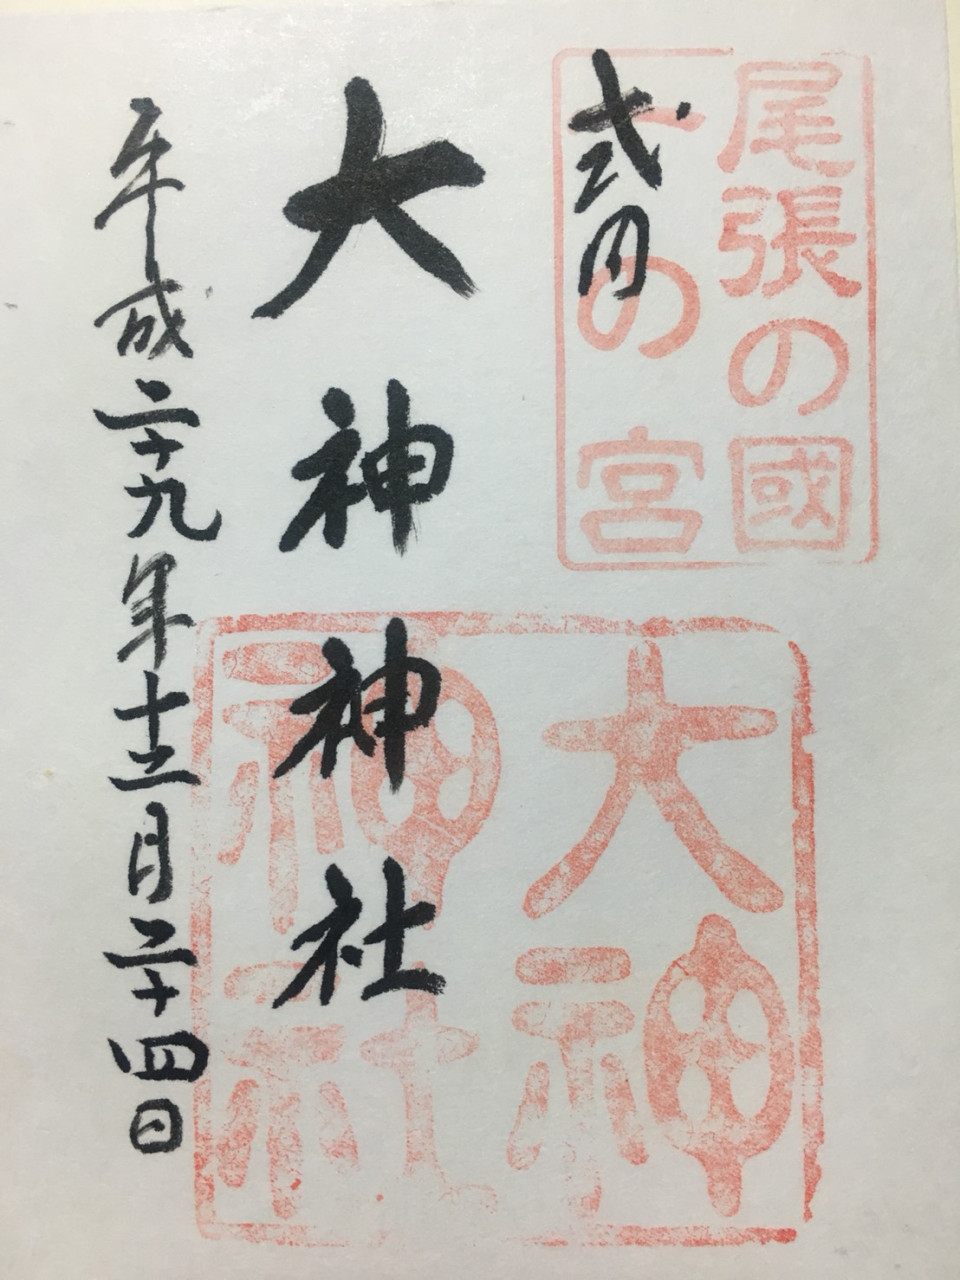 尾張の國
一の宮
式内
大神神社
平成二十九年十二月二十四日
大神
神社